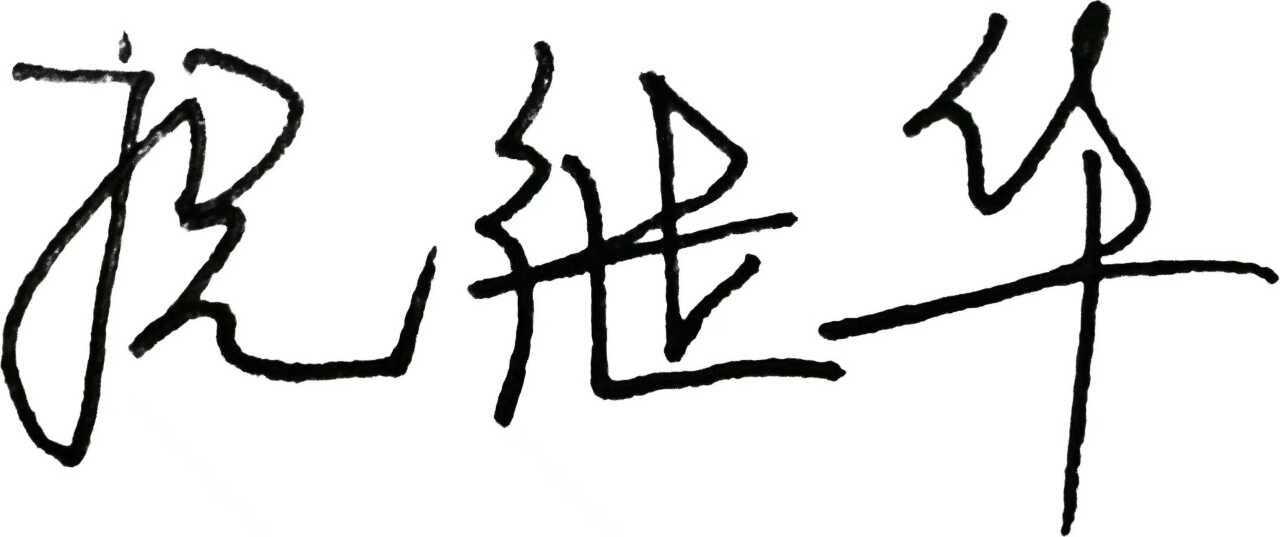 祝继华